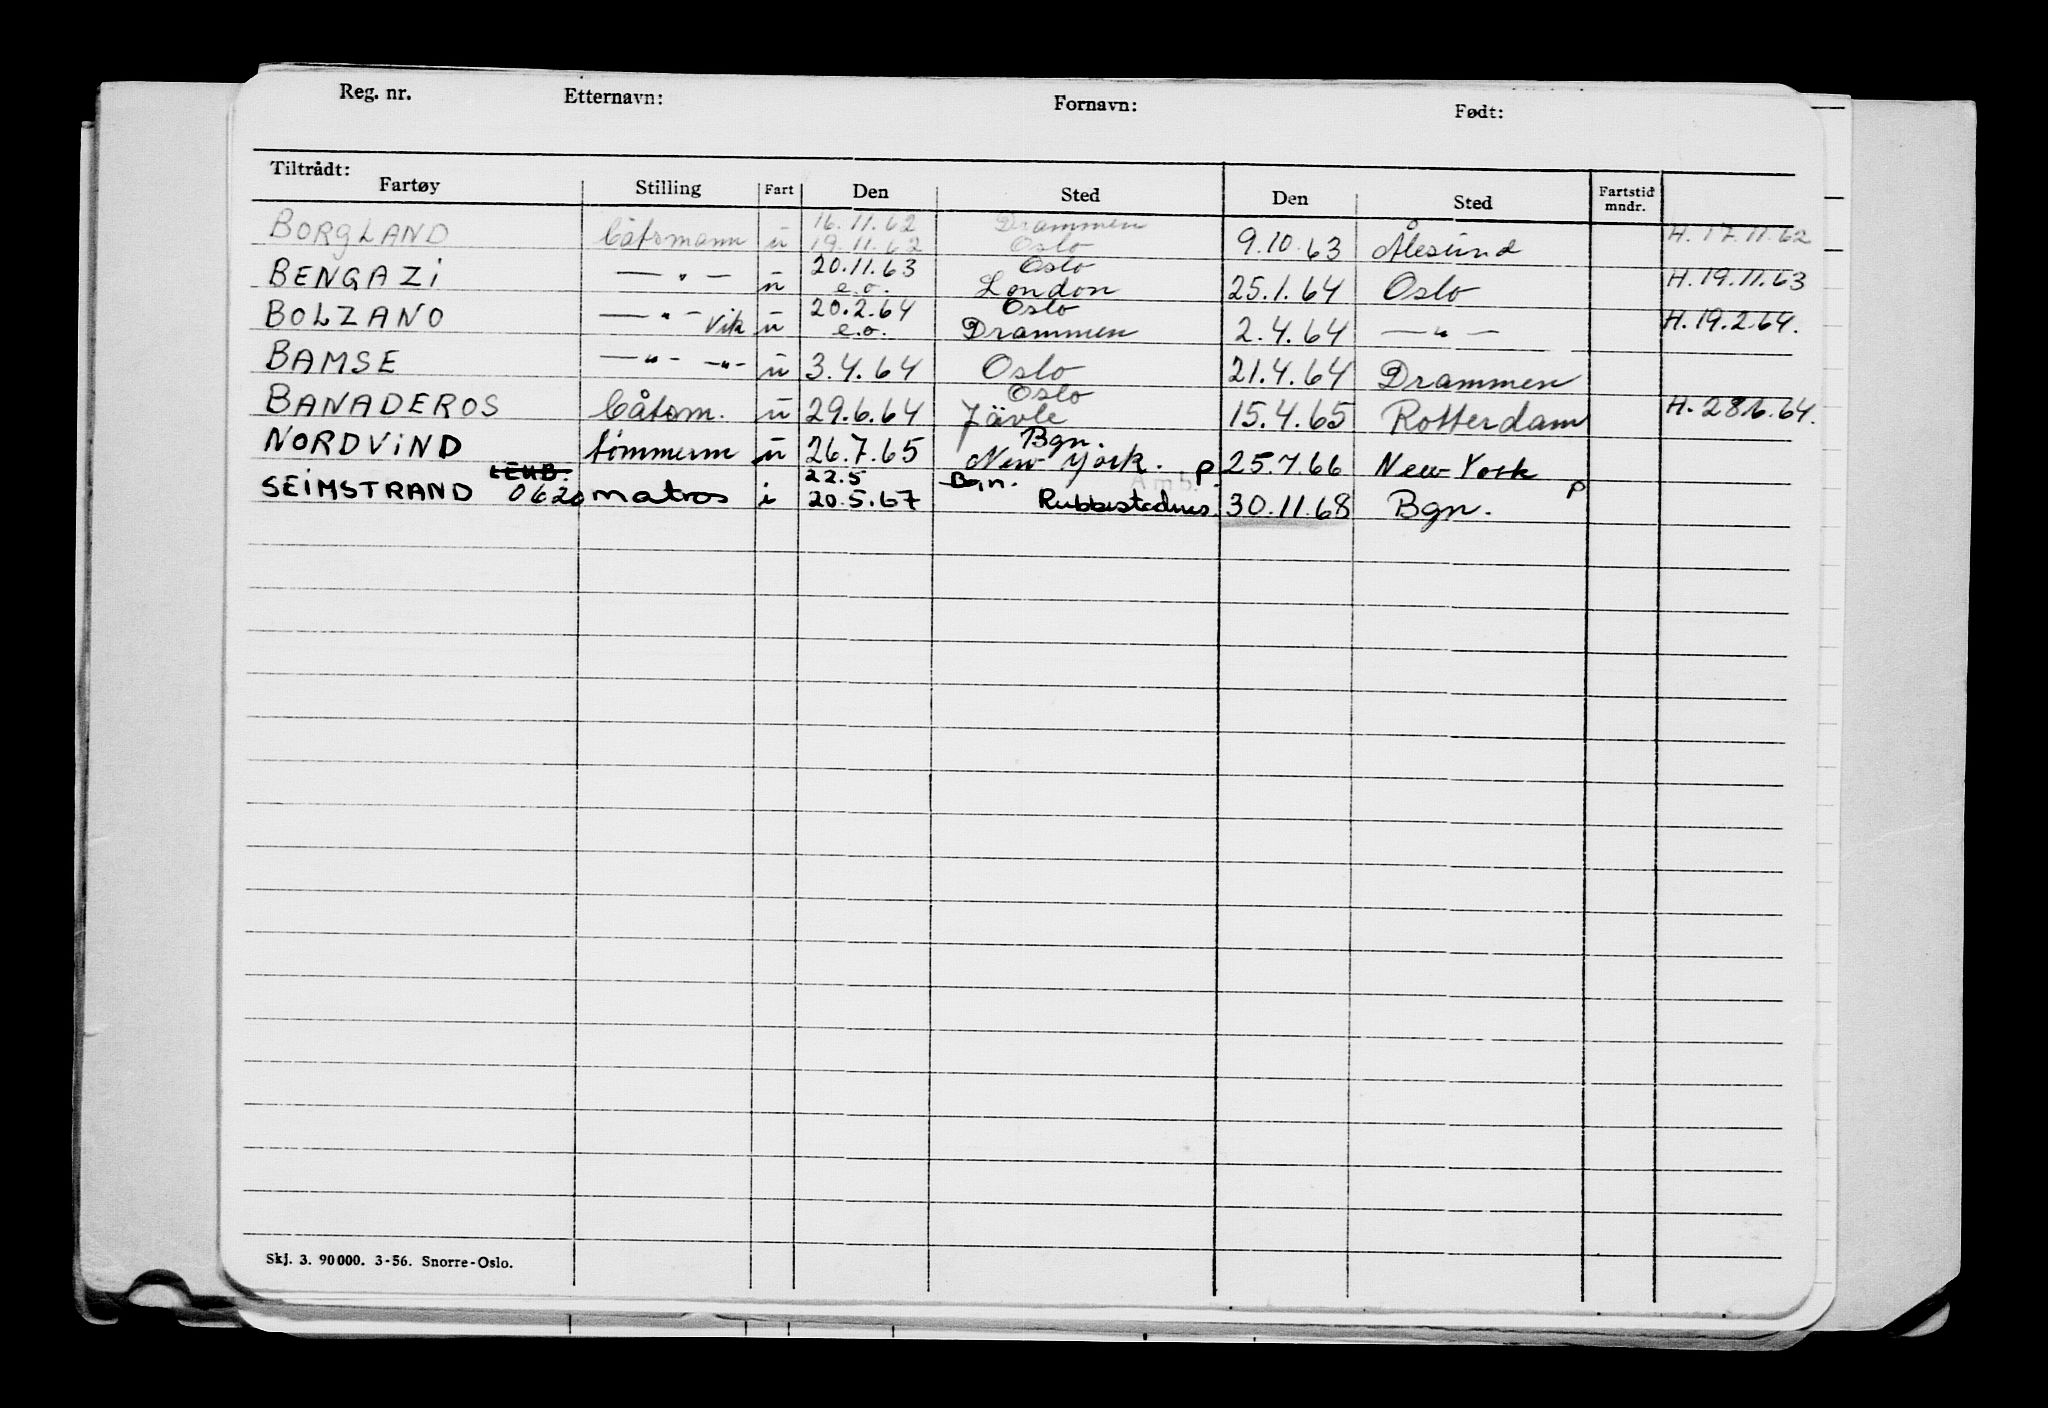 Reg. nr. Etternavn: Fornavn: Født:
Tiltrådt:
Fartøy Stilling Fart Den Sted Den Sted Fartstid mndr.
16.11.62 Drammen
BORGLAND båtsmann u 19.11.62 Oslo 9.10.63 Ålesund H. 17.11.62
20.11.63 Oslo
BENGAZI — " — u e.o. London 25.1.64 Oslo H. 19.11.63
20.2.64 Oslo
BOLZANO — " — vik u e.o. Drammen 2.4.64 — " — H. 19.2.64.
BAMSE — " - -"- u 3.4.64 Oslo 21.4.64 Drammen
Oslo
BANADEROS båtsm. u 29.6.64 Jävle 15.4.65 Rotterdam H. 28.6.64.
Bgn.
NORDVIND tømmerm u 26.7.65 New York. p 25.7.66 New York
22.5 Bgn. Amb. p
SEIMSTRAND 0620 matros i 20.5.67 Rubbestadnes. 30.11.68 Bgn.
Skj. 3. 90 000. 3-56. Snorre-Oslo.